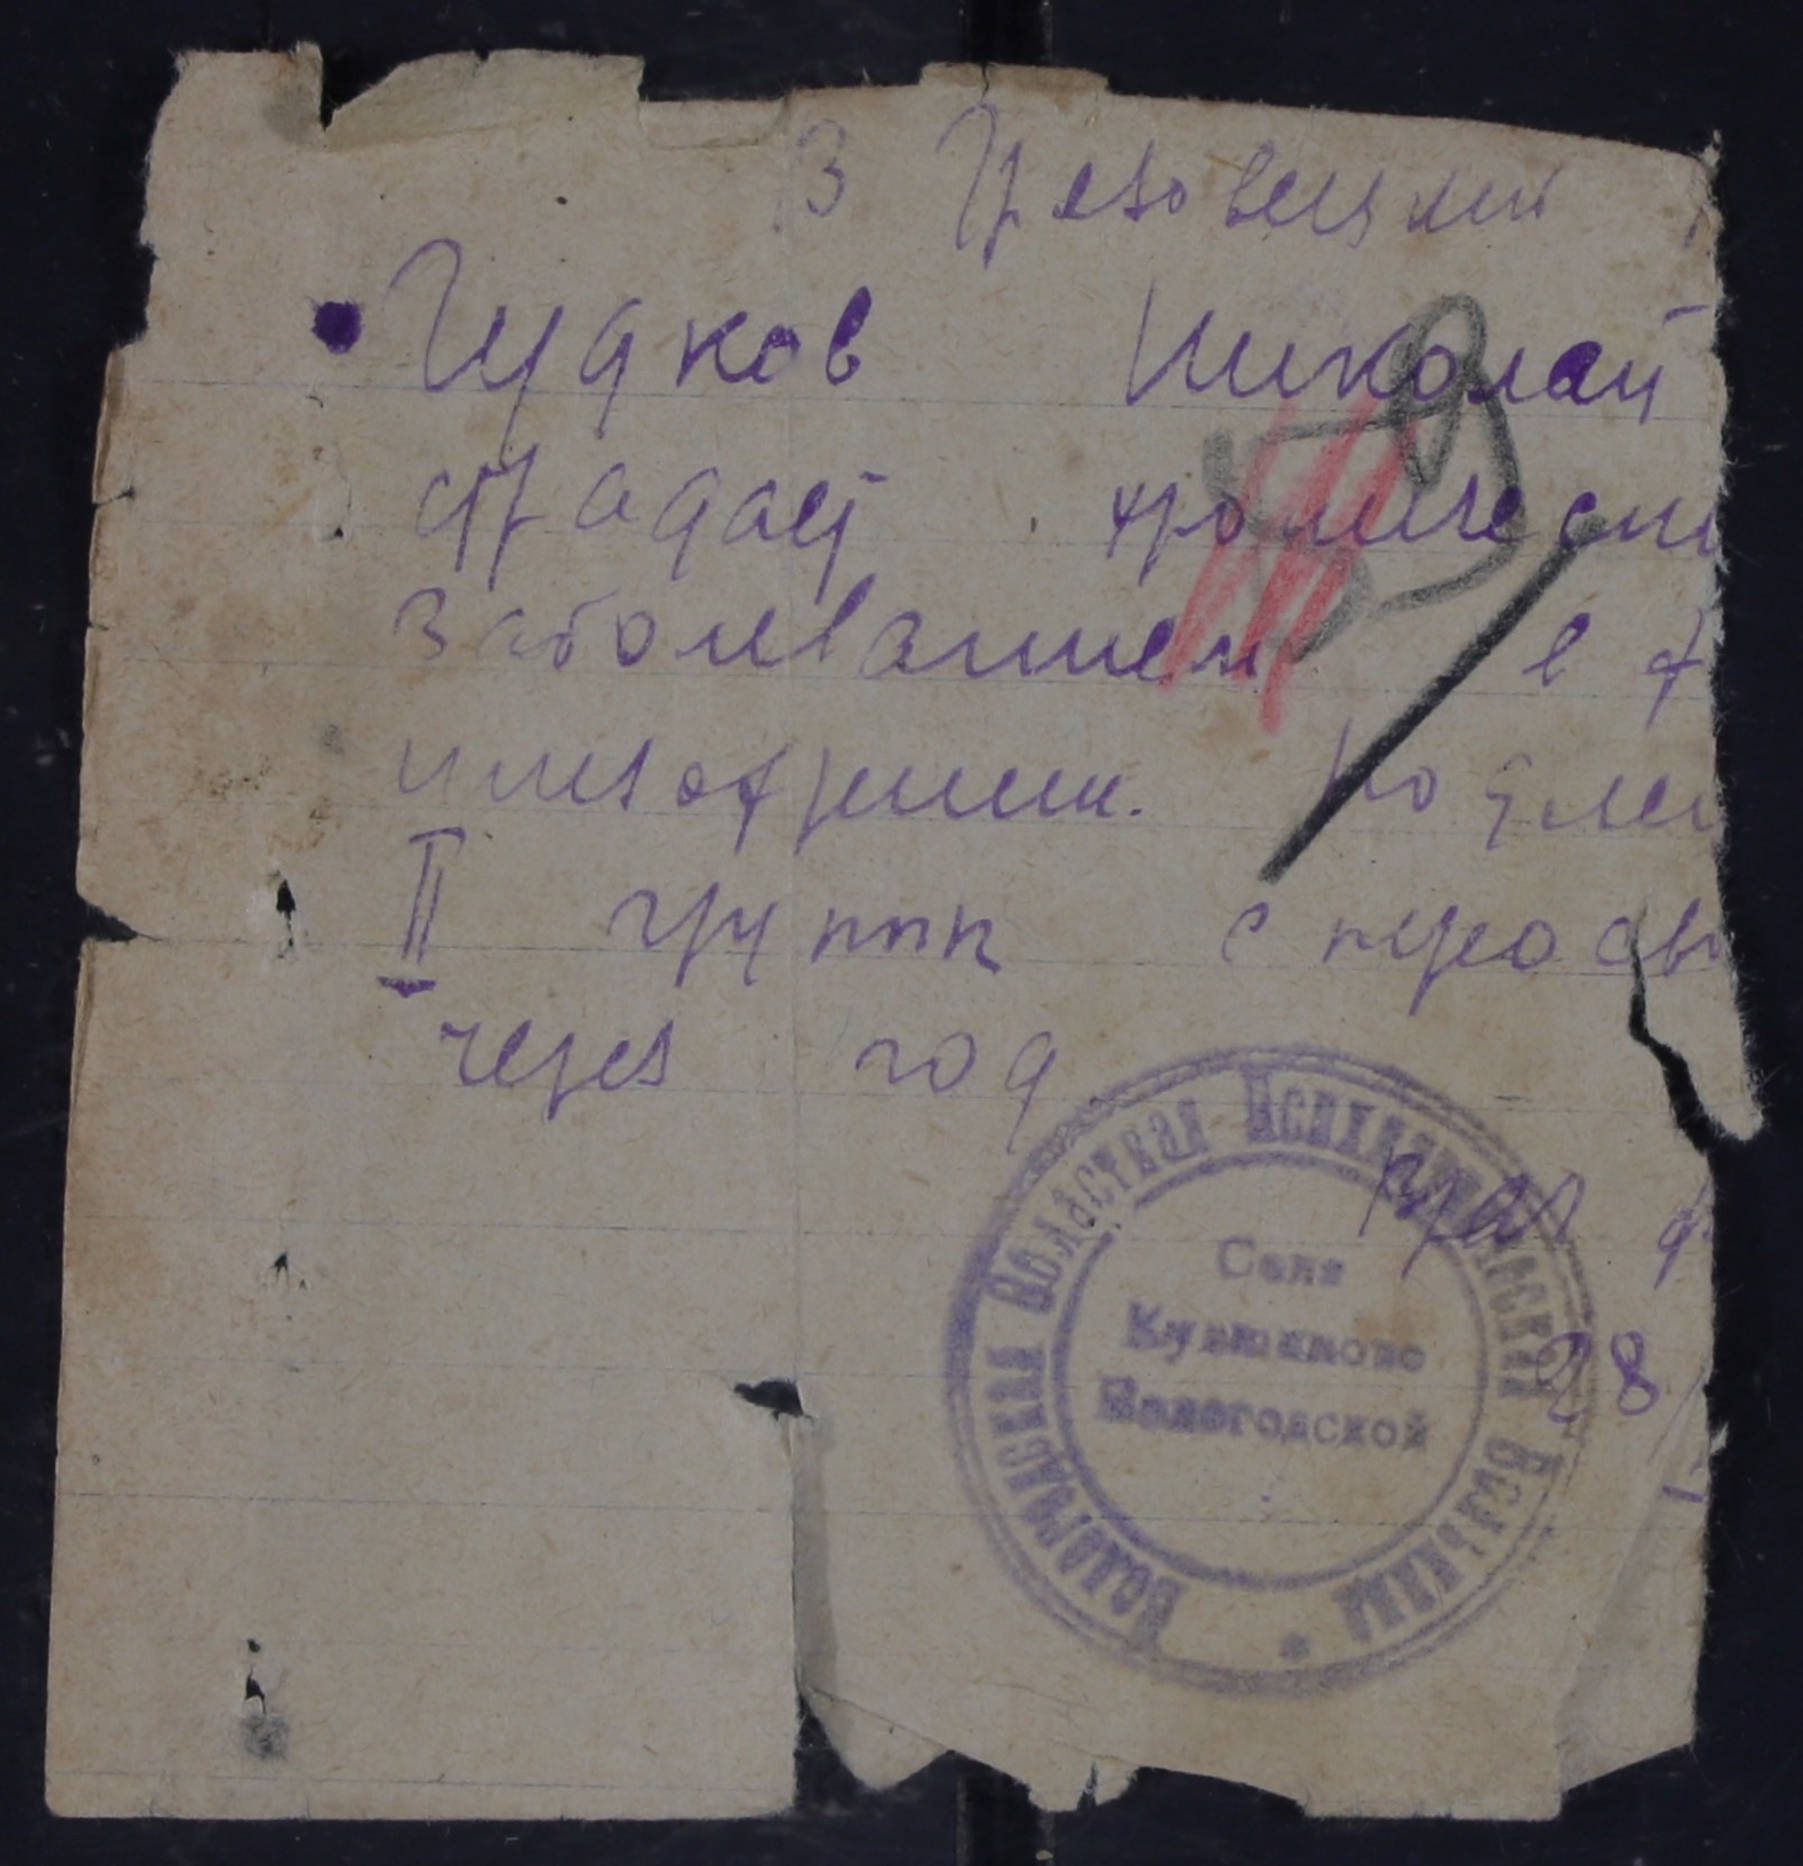 В Грязовецкий
Гудков Николай
страдает хроничесни
заболеванием в ф
шизофрении. Подле
II групп с переосв
через год
врах
28
Вологодская Областная Психиатрическая Больница *
Село
Кувшиново
Вологодской